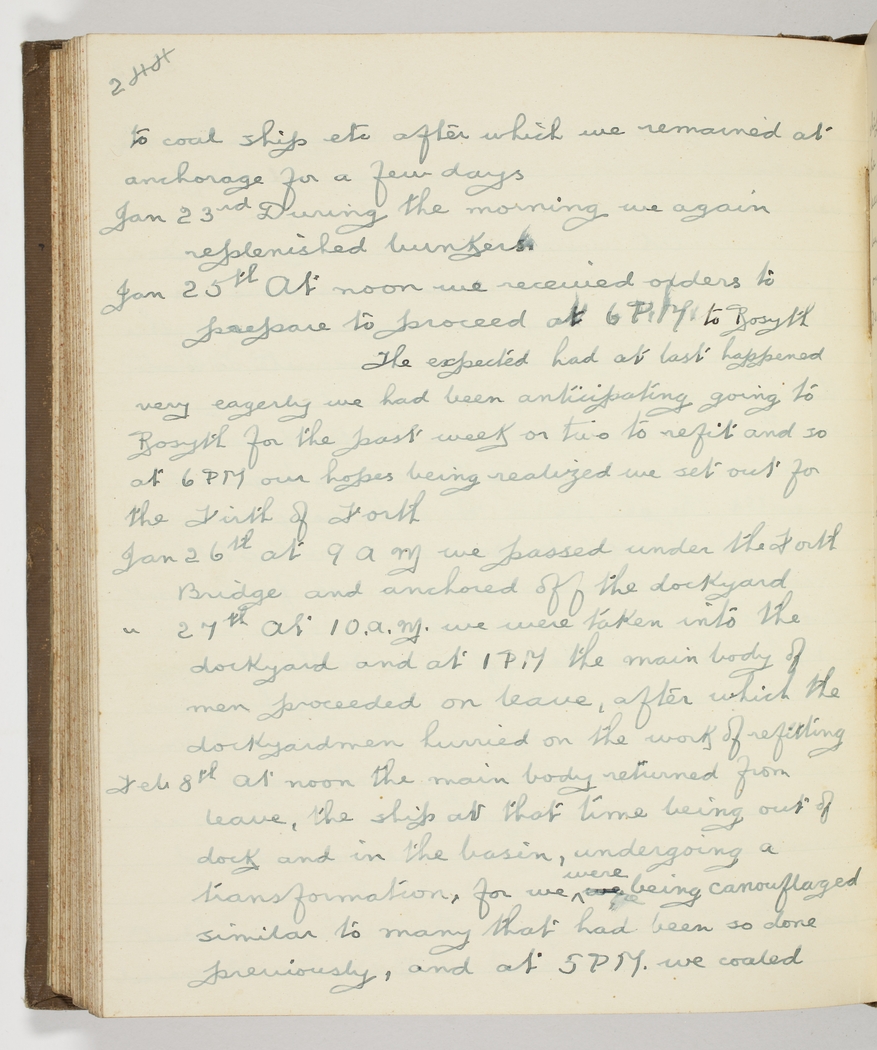 244
to coal ship etc after which we remained at
anchorage for a few days
Jan 23rd During the morning we again
replenished bunkers.
Jan 25th At noon we received orders to
prepare to proceed at 6 P.M. to Rosyth
The expected had at last happened
very eagerly we had been anticipating going to
Rosyth for the past week or two to refit and so
at 6 PM our hopes being realized we set out for
the Firth of Forth
Jan 26th at 9 a m we passed under the Forth
Bridge and anchored off the dockyard
" 27th At 10.a.m. we were taken into the
dockyard and at 1 PM the main body of
men proceeded on leave, after which the
dockyardmen hurried on the work of refitting
Feb 8th At noon the main body returned from
leave, the ship at that time being out of
dock and in the basin, undergoing a
transformation, for we were being camouflaged
similar to many that had been so done
previously, and at 5 PM. we coaled